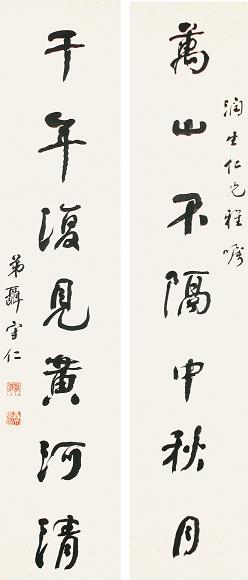 萬山不隔中秋月
润生仁兄雅嘱
千年復見黃河清
弟聶守仁